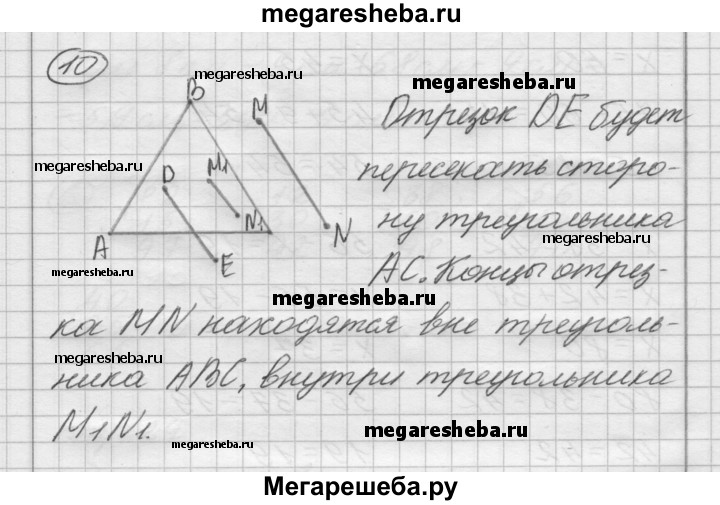 megaresheba.ru
10
megaresheba.ru
B
M
megaresheba.ru
Отрезок DE будет
megaresheba.ru
D
M1
пересекать сторо-
N1
N
ну треугольника
A
megaresheba.ru
megaresheba.ru
E
AC. Концы отрез-
megaresheba.ru
ка MN находятся вне треуголь-
megaresheba.ru
ника ABC, внутри треугольника
M1N1.
megaresheba.ru
megaresheba.ru
Мегарешеба.ру